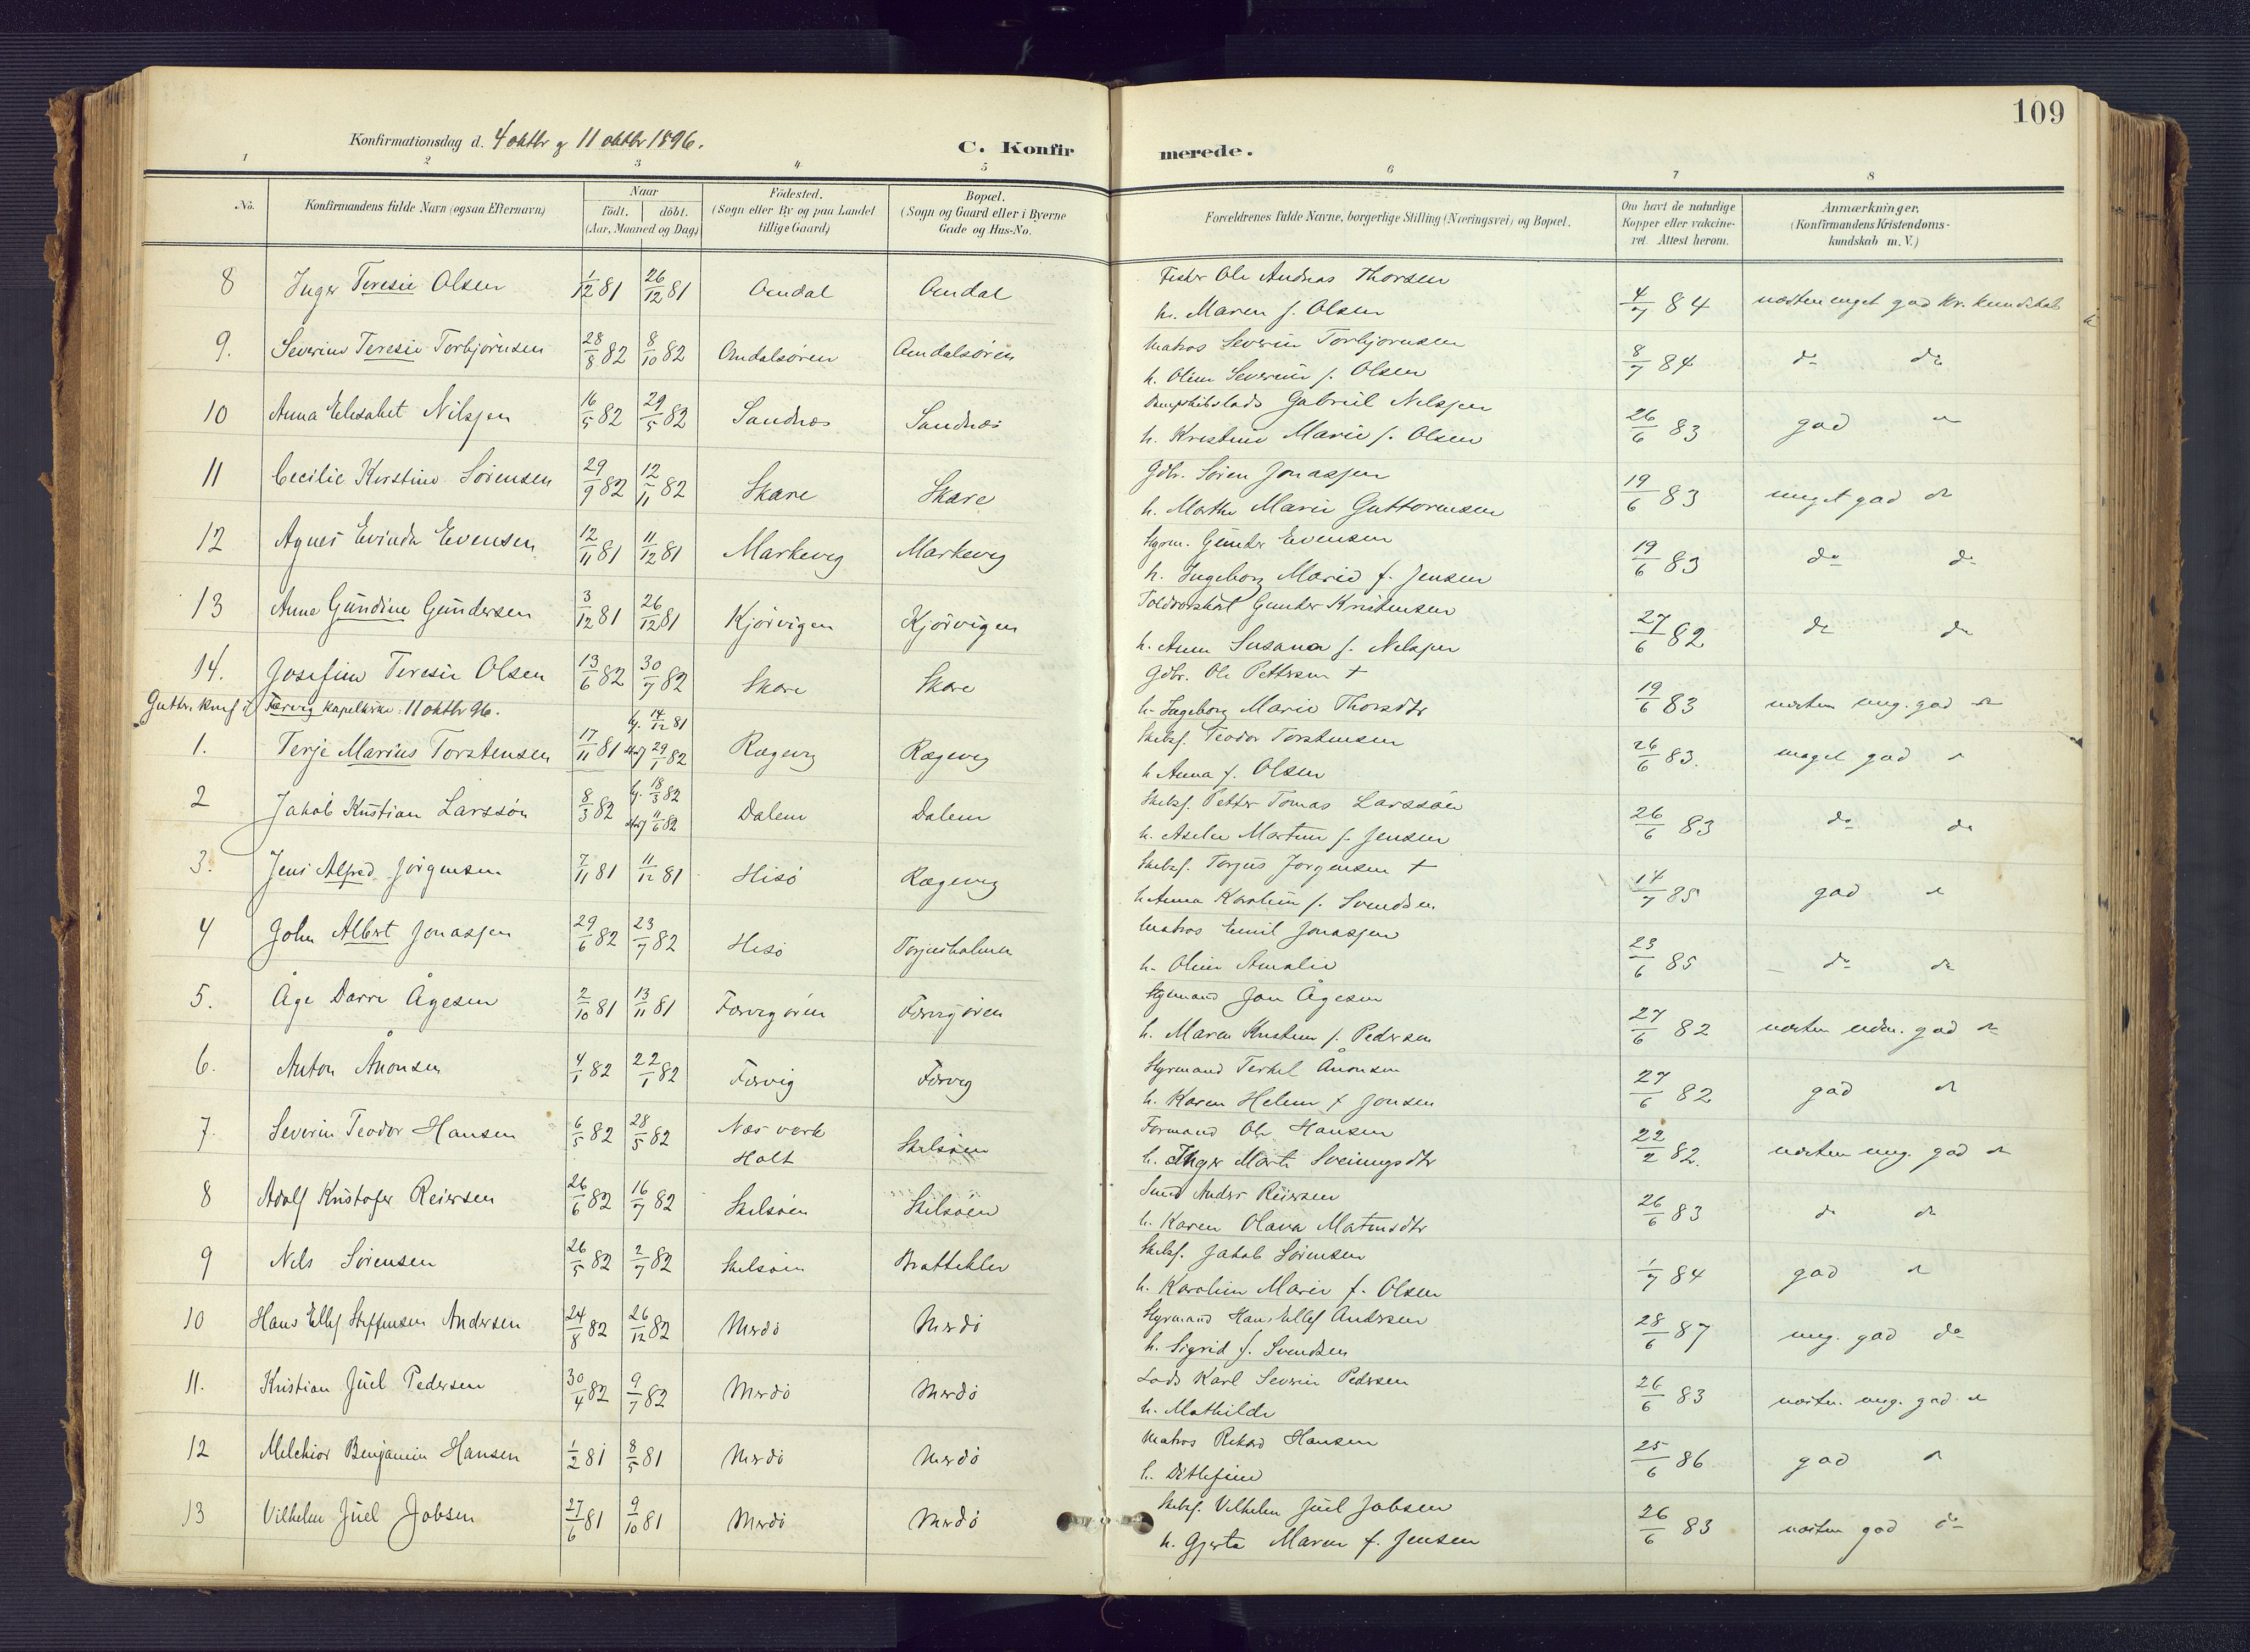 109
Konfirmationsdag d. 4 oktbr g 11 oktbr 1896.
C. Konfirmerede.
1 2 3 4 5 6 7 8
No. Konfirmandens fulde Navn (ogsaa Efternavn) Naar födt. döbt. (Aar, Maaned og Dag) Födested. (Sogn eller By og paa Landet tillige Gaard) Bopæl. (Sogn og Gaard eller i Byerne Gade og Hus-No. Forældrenes fulde Navne, borgerlige Stilling (Næringsvei) og Bopæl. Om havt de naturlige Kopper eller vakcineret. Attest herom. Anmærkninger. (Konfirmandens Kristendomskundskab m. V.)
8 Inger Teresie Olsen 1/12 81 26/12 81 Omdal Omdal Fisker Ole Andreas Thorsen
h. Maren f. Olsen 4/7 84 næsten meget god kr. kundskab
9. Severine Teresie Torbjörnsen 28/8 82 8/10 82 Omdalsören Omdalsören Matros Severin Torbjörnsen
h. Oline Severine f. Olsen 8/7 84 do do
10 Anna Elisabet Nilssen 16/5 82 29/5 82 Sandnæs Sandnæs Dampskibslods Gabriel Nilssen
h. Kristine Marie f. Olsen 26/6 83 god do
11 Cecilie Kirstine Sörensen 29/9 82 12/11 82 Skare Skare Gdbr. Sören Jonassen
h. Marthe Marie Guttormsen 19/6 83 meget god do
12 Agnes Evinda Evensen 12/11 81 11/12 81 Markevig Markevig Styrm. Gunder Evensen
h. Ingeborg Marie f. Jensen 19/6 83 do do
13 Anne Gundine Gundersen 3/12 81 26/12 81 Kjörvigen Kjörvigen Toldvarskarl Gunder Kristensen
h. Anne Susana f. Nilssen 27/6 82 do do
14. Josefine Teresie Olsen 13/6 82 30/7 82 Skare Skare Gdbr. Ole Pettersen †
h. Ingeborg Marie Thorsdtr 19/6 83 næsten meg. god do
Gutter. Konf. i Færvig kapelkirke 11 oktbr 96.
1. Terje Marius Torstensen 17/11 81 hj. 14/12 81 29/1 82 Rægevig Rægevig Skibsf. Teodor Torstensen
h Anna f. Olsen 26/6 83. meget god do
2 Jakob Kristian Larssön 8/3 82 hj. 18/3 82 11/6 82 Dalene Dalene Skibsf. Petter Tomas Larssön
h. Aselie Martine f. Jensen 26/6 83 do do
3. Jens Alfred Jörgensen 7/11 81 11/12 81 Hisö Rægevig Skibsf. Torjus Jörgensen †
h Anna Karoline f. Svendsen 14/7 85 god do
4 John Albert Jonassen 29/6 82 23/7 82 Hisö Torjusholmen Matros Emil Jonassen
h. Oline Amalie 23/6 85 do do
5. Åge Dorre Ågesen 2/10 81 13/11 81 Færvigören Færvigören Styrmand Jon Ågesen
h. Maren Kristine f. Pedersen 27/6 82 næsten god do
6. Anton Ånonsen 4/1 82 22/1 82 Færvig Færvig Styrmand Terkel Ånonsen
h. Karen Helene f Jonsen 27/6 82 god do
7. Severin Teodor Hansen 6/5 82 28/5 82 Næs verk Holt Skilsöen Formand Ole Hansen
h. Inger Marte Sveinungsdtr 22/2 82. næsten meg. god do
8 Adolf Kristofer Reiersen 26/6 82 16/7 82 Skilsöen Skilsöen Smed Anders Reiersen
h. Karen Olava Mortensdtr 26/6 83 do do
9 Nils Sörensen 26/5 82 2/7 82 Skilsöen Brattekler Skibsf. Jakob Sörensen
h. Karoline Marie f. Olsen 1/7 84 god do
10 Hans Ellef Steffensen Andersen 24/8 82 26/12 82 Merdö Merdö Styrmand Hans Ellef Andersen
h. Sigrid f. Svendsen 28/6 87 meg. god do
11. Kristian Juel Pedersen 30/4 82 9/7 82 Merdö Merdö Lods Karl Severin Pedersen
h. Mathilde 26/6 83 næsten. meg. god do
12 Melchior Benjamin Hansen 1/2 81 8/5 81 Merdö Merdö Matros Rikard Hansen
h. Ditlefine 25/6 86 god do
13 Vilhelm Juel Jobsen 27/6 81 9/10 81 Merdö Merdö Skibsf. Vilhelm Juel Jobsen
h. Gjerta Maren f. Jensen 26/6 83 næsten god do